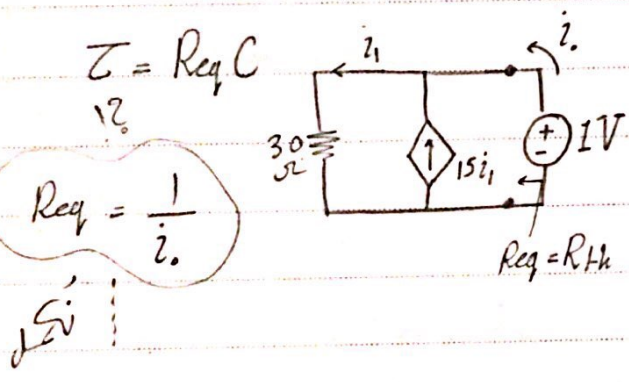 τ = Req C
i₁
i₀
30 Ω
15i₁
+
-
1V
Req = 1 / i₀
Req = Rth